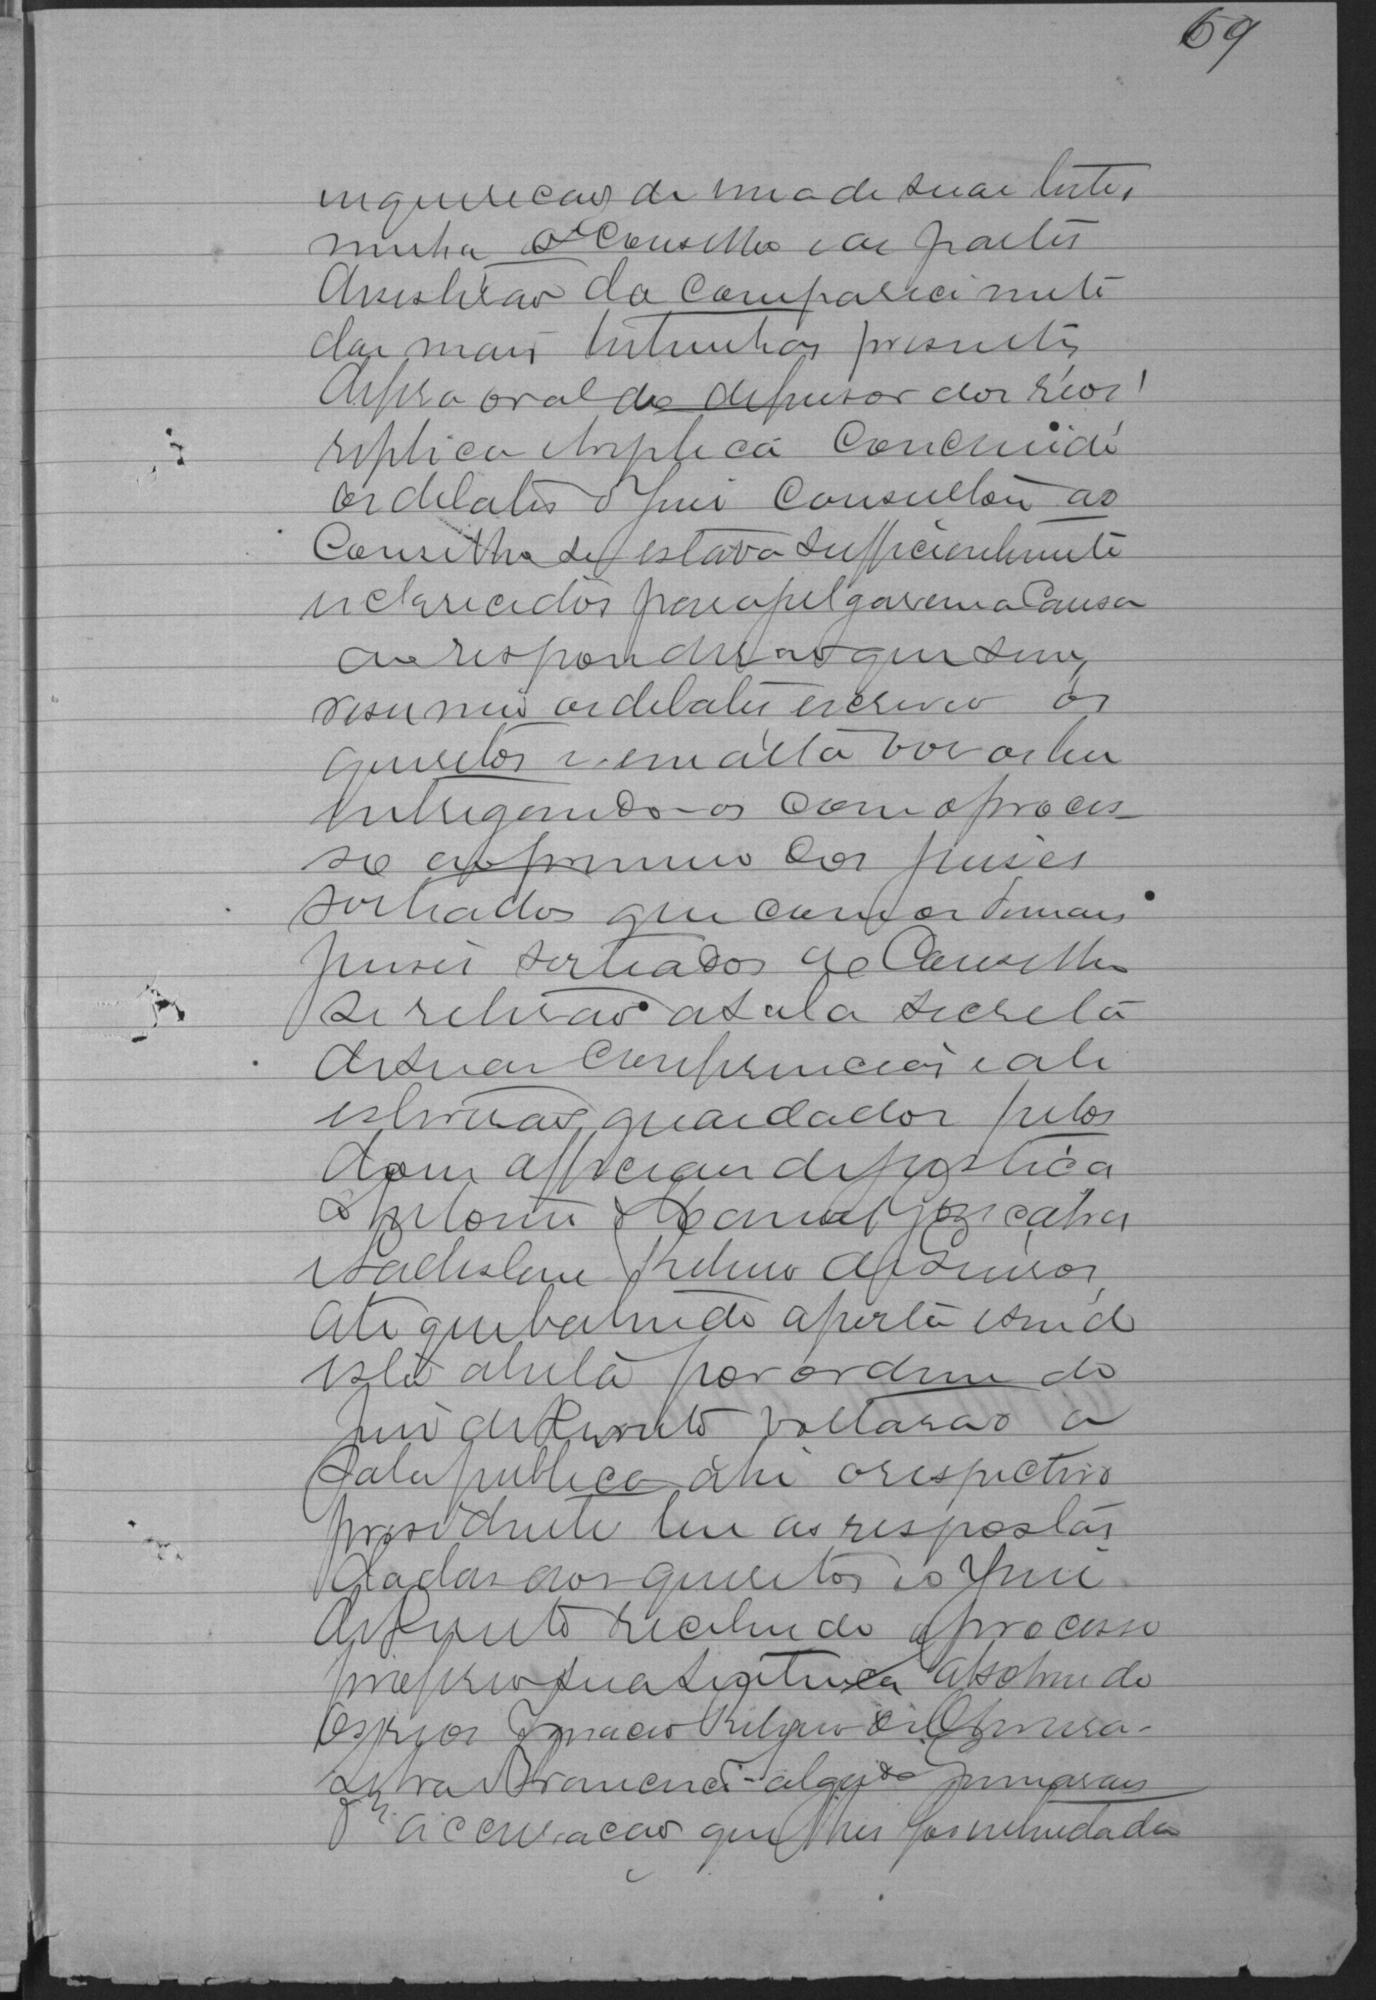 69
inquirição de uma de suas teste
munha o Conselho e as partes
desistirão do comparecimento
das mais testemunhas presentes
defesa oral do defensor dos réos
replica e treplica Concluido
os debates o Juis Consultou ao
Conselho se estava sufficientemente
esclarecidos para julgarem a Causa
ao responderão que sim,
resumio os debates escreveo os
quesitos e em alta vos os leu
entregando-os com o proces-
so ao primeiro dos juises
sorteados que com os demais
juises sorteados do Conselho
se retirão a sala secreta
de suas Conferencias e ali
estiverão guardados pelos
dous officiaes de justiça
Manoel José
Ladislau Ribeiro de
até que batendo a porta e sendo
esta aberta por ordem do
juis de Direito voltarão a
Sala publica ahi o respectivo
presidente leu as respostas
dadas aos quesitos e o Juis
de Direito recebendo o processo
proferio sua sentença absolvendo
os reos Ignacio Ribeiro de Oliveira
Silva e
accusação que lhes foi intentada